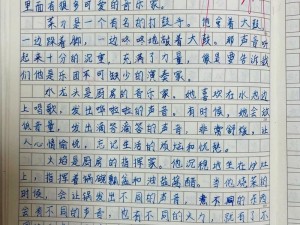 里面有很多可爱的音乐家。
菜刀是一个有名的打鼓手。他拿着大鼓
一边踩着脚，一边咚咚地敲着大鼓。那声音听
起来十分的沉重，充满了力量，像是要告诉我
们他是乐团不可缺少的演奏家。
水龙头是厨房的音乐家。她喜欢在水池边
上唱歌，发出哗啦啦的声音。有时候，她会放
低音量，发出滴答滴答的声音，非常舒缓，让
人心情愉悦，忘记生活的烦恼和忧愁。
大锅是厨房的指挥家。他沉稳地坐在炉灶
上，指挥着锅碗瓢盆和油盐酱醋。当他烧菜的
时候，会让锅发出不同的声音，
会有不同的声音，也有不同的火力，就有了不